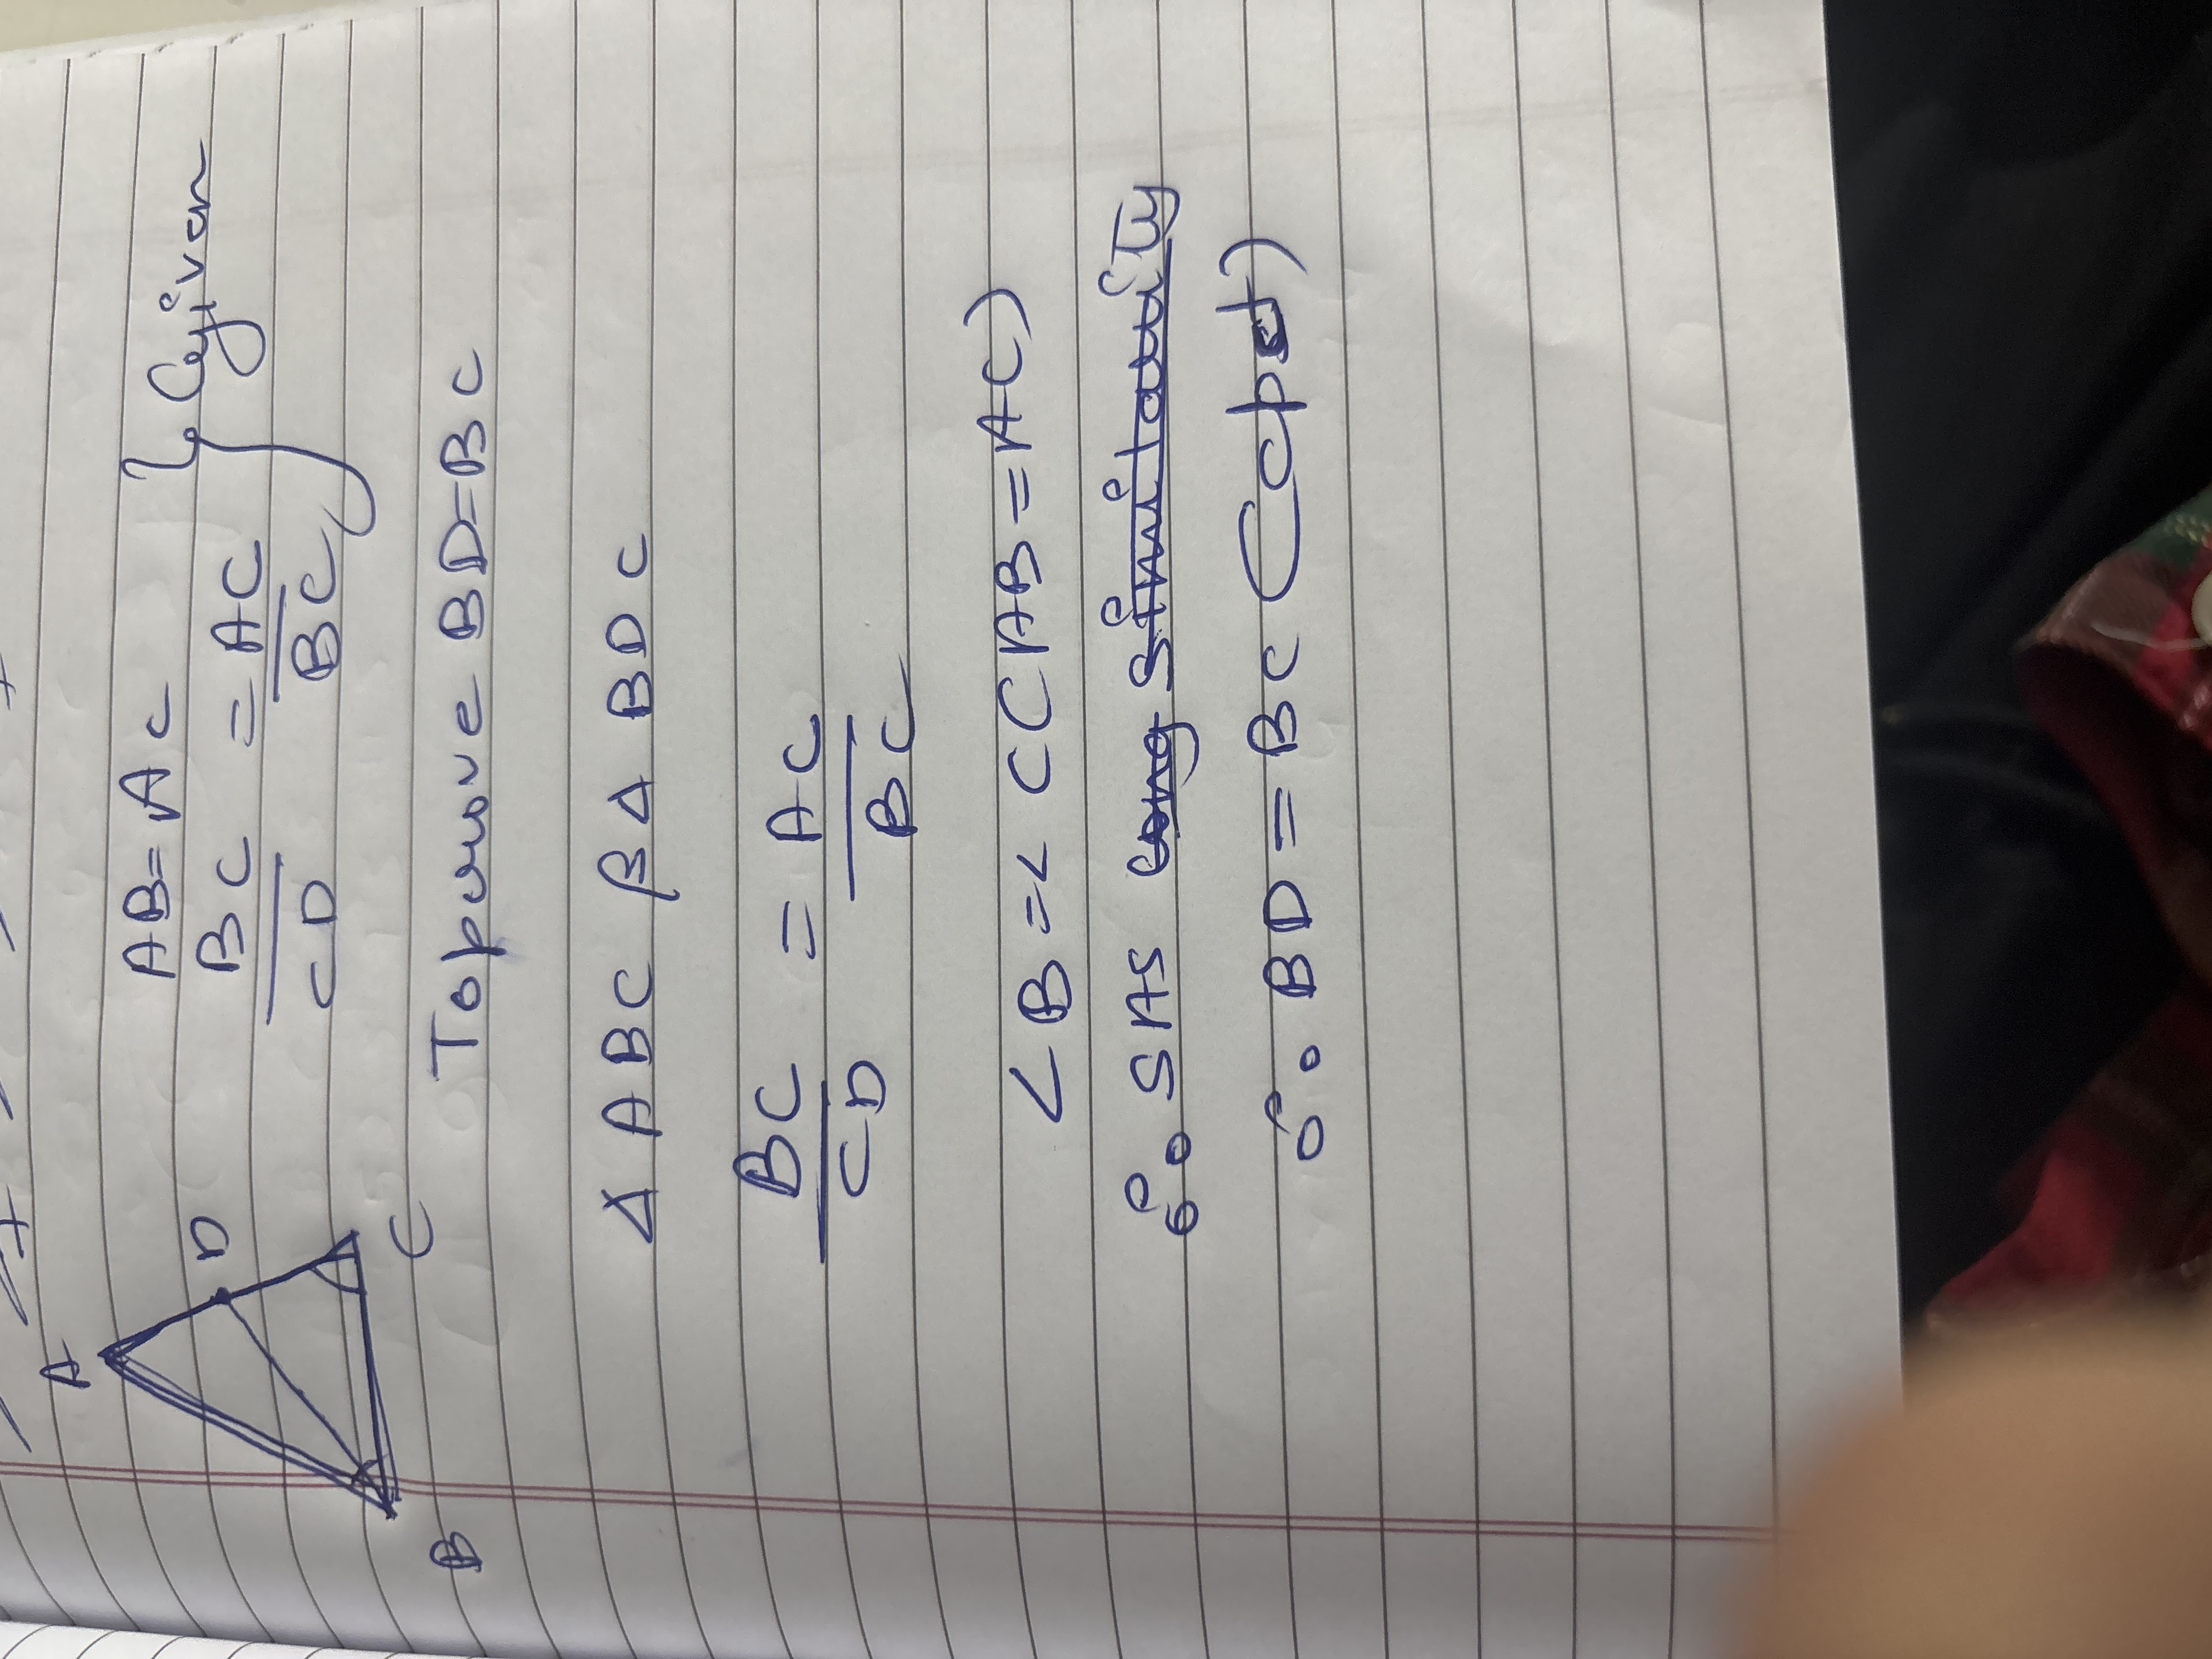 A
D
B
C
AB = AC
BC/CD = AC/BC } Given
To prove BD = BC
Δ ABC β Δ BDC
BC/CD = AC/BC
∠B = ∠C (AB = AC)
∴ SAS cong similarity
∴ BD = BC (cpct)